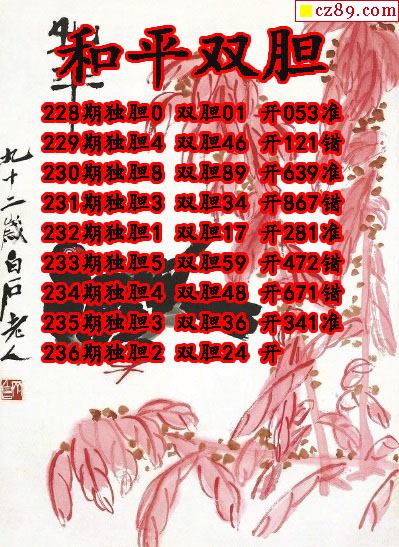 cz89.com
和平
和平双胆
228期独胆0 双胆01 开053准
229期独胆4 双胆46 开121错
230期独胆8 双胆89 开639准
231期独胆3 双胆34 开867错
232期独胆1 双胆17 开281准
233期独胆5 双胆59 开472错
234期独胆4 双胆48 开671错
235期独胆3 双胆36 开341准
236期独胆2 双胆24 开
九十二岁白石老人